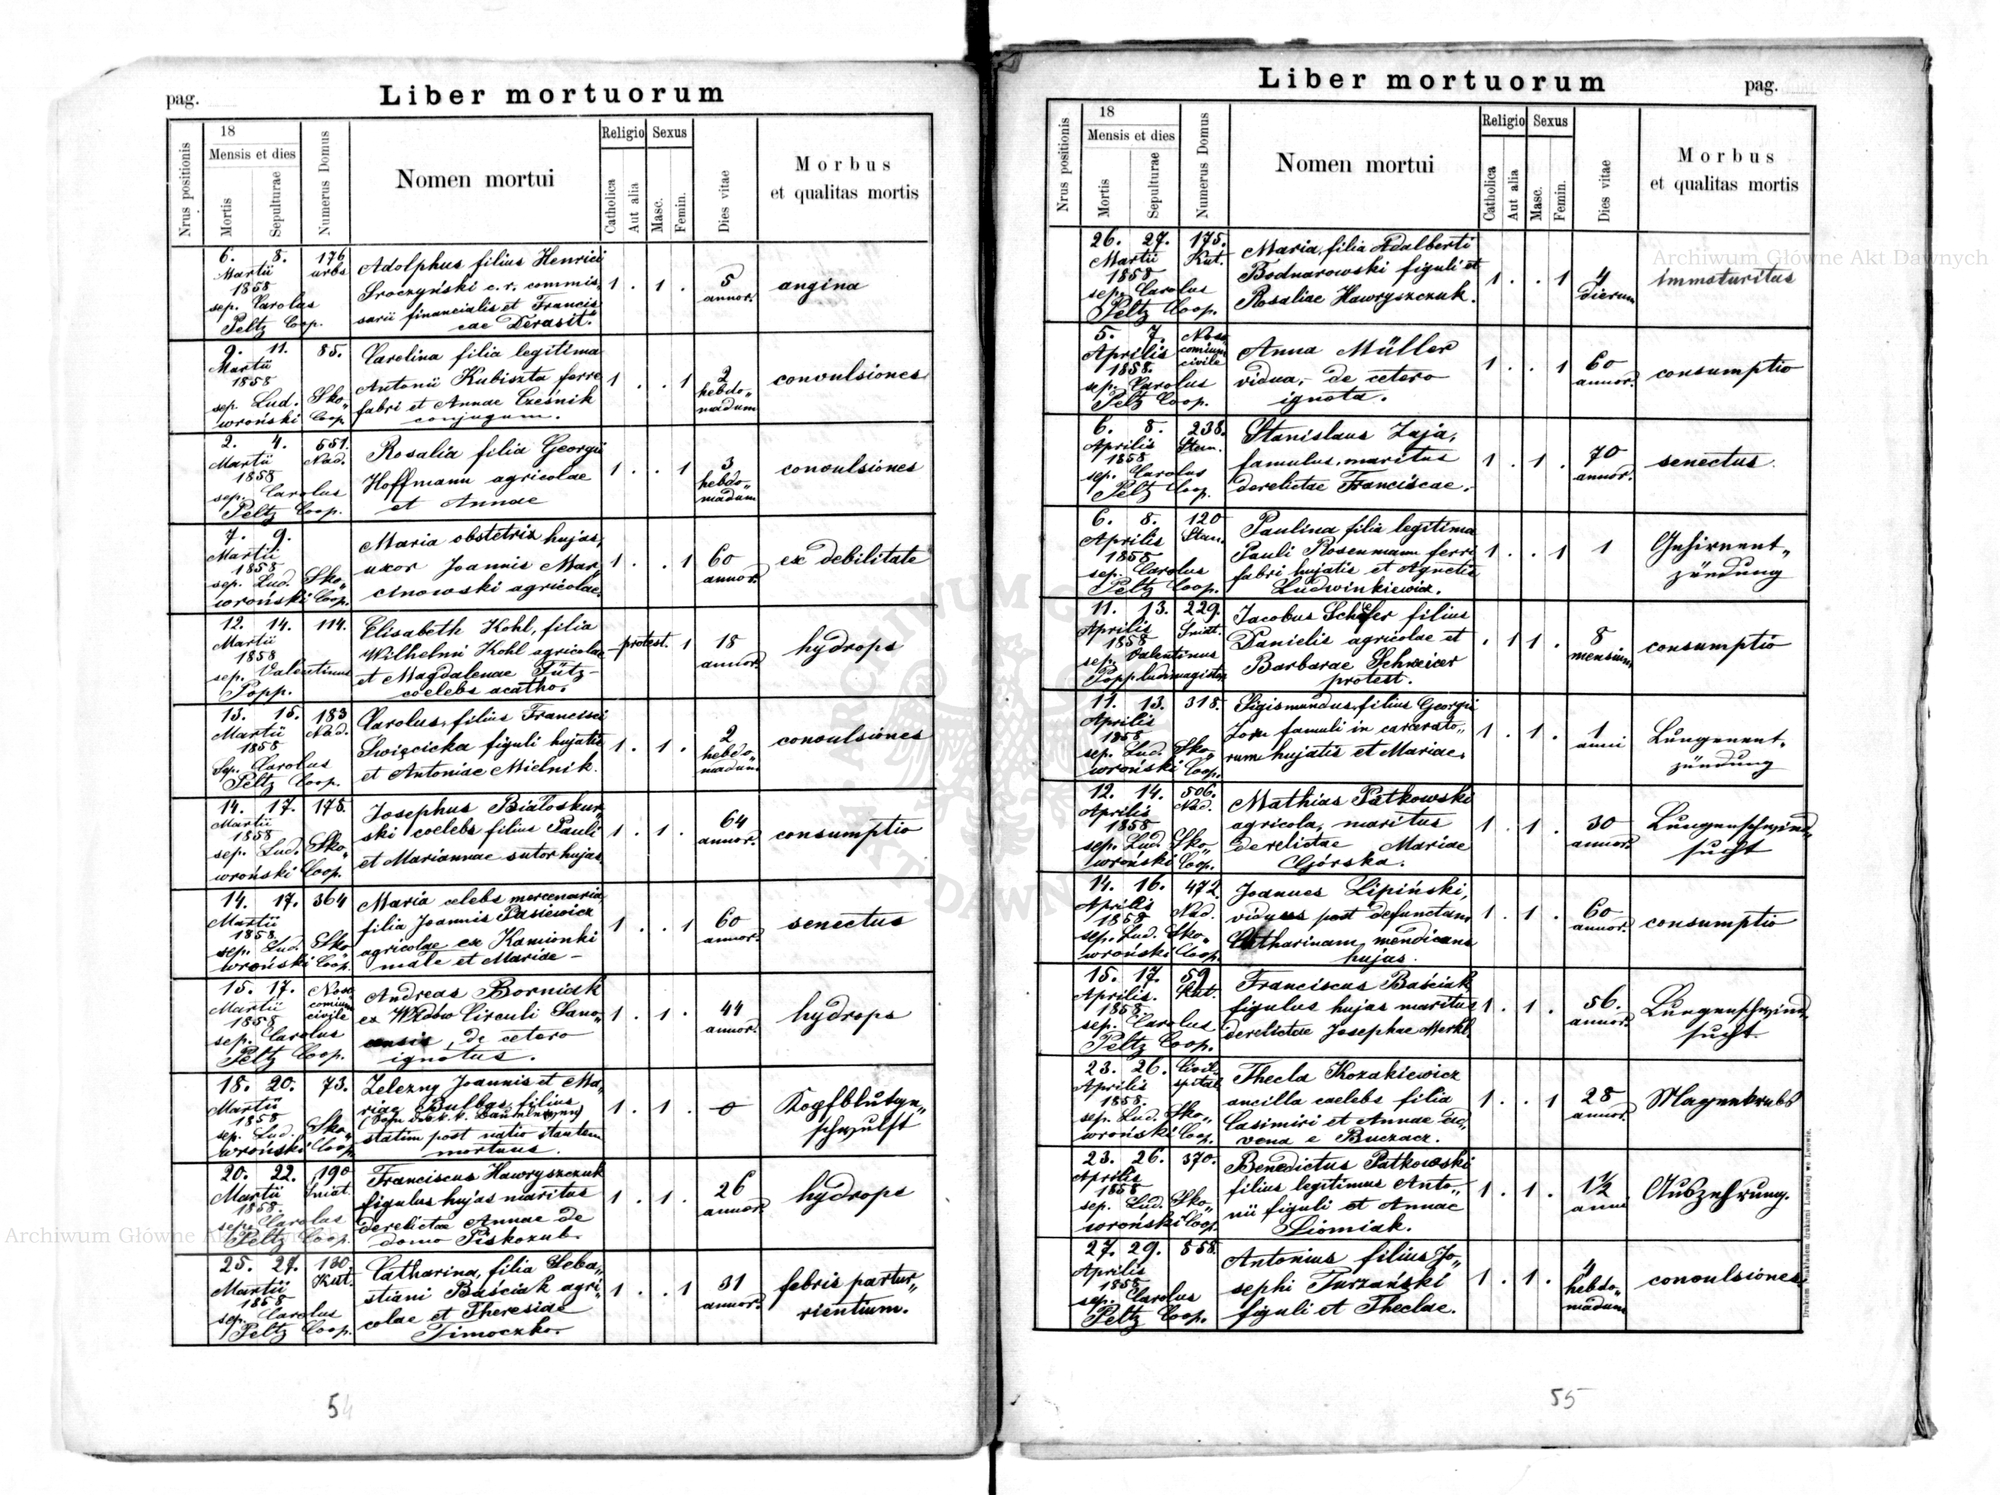 pag.
Liber mortuorum
Nrus positionis
18
Mensis et dies
Mortis
Sepulturae
Numerus Domus
Nomen mortui
Religio
Catholica
Aut alia
Sexus
Masc.
Femin.
Dies vitae
Morbus
et qualitas mortis
6. 8. 176
Martii urbs
1858
sep. Carolus
Peltz Coop.
Adolphus filius Henrici
Sroczyński c. r. commis
sarii financialis et Francis
cae Derasit.
1 . 1 .
5
annor.
angina
9. 11. 85.
Martii
1858
sep. Lud. Sko„
wroński Coop.
Carolina filia legitima
Antonii Kubiszta ferre
fabri et Annae Cześnik
conjugum.
1 . . 1
2
hebdo„
madum
convulsiones
2. 4. 551.
Martii Nad.
1858
sep. Carolus
Peltz Coop.
Rosalia filia Georgii
Hoffmann agricolae
et Annae
1 . . 1
3
hebdo„
madum
convulsiones
7. 9.
Martii
1858
sep. Lud. Sko„
wroński Coop.
Maria obstetrix hujas,
uxor Joannis Mar
cinowski agricolae.
1 . . 1
60
annor.
ex debilitate
12. 14. 114.
Martii
1858
sep. Valentinus
Popp.
Elisabeth Kohl, filia
Wilhelmi Kohl agricolae
et Magdalenae Fütz
coelebs acatho.
protest. 1
18
annor.
hydrops
13. 15. 183
Martii Nad.
1858
Sep. Carolus
Peltz Coop.
Carolus, filius Francisci
Swięcicka figuli hujatis
et Antoniae Mielnik.
1 . 1 .
2
hebdo„
madum
convulsiones
14. 17. 175.
Martii
1858
sep. Lud. Sko„
wroński Coop.
Josephus Białoskur„
ski coelebs filius Pauli
et Mariannae sutor hujas.
1 . 1 .
64
annor.
consumptio
14. 17. 364
Martii
1858
sep. Lud. Sko„
wroński Coop.
Maria celebs mercenaria
filia Joannis Pasiewicz
agricolae ex Kamionki
małe et Mariae
1 . . 1
60
annor.
senectus
15. 17. Noso
Martii comium
1858 civile
sep. Carolus
Peltz Coop.
Andreas Borniak
ex Wzdow Circuli Sano„
censis, de cetero
ignotus.
1 . 1 .
44
annor.
hydrops
18. 20. 73.
Martii
1858
sep. Lud. Sko„
wroński Coop.
Zelezny Joannis et Ma„
riae Bulbas filius
statim post natio stantem
mortuus.
1 . 1 .
0
Kopfblutge„
schwulst
20. 22. 190
Martii Sniat.
1858.
sep. Carolus
Peltz Coop.
Franciscus Hawryszczuk
figulus hujas maritus
derelictae Annae de
domo Piskozub.
1 . 1 .
26
annor.
hydrops
25. 27. 130
Martii Kut.
1858
sep. Carolus
Peltz Coop.
Catharina, filia Seba„
stiani Baściak agri„
colae et Theresiae
Timoczko.
1 . . 1
31
annor.
febris partur„
rientium.
54
Liber mortuorum
pag.
Nrus positionis
18
Mensis et dies
Mortis
Sepulturae
Numerus Domus
Nomen mortui
Religio
Catholica
Aut alia
Sexus
Masc.
Femin.
Dies vitae
Morbus
et qualitas mortis
26. 27. 175.
Martii Kut.
1858
sep. Carolus
Peltz Coop.
Maria, filia Adalberti
Bodnarowski figuli et
Rosaliae Hawryszczuk.
1 . . 1
4
dierum
immaturitas
5. 7. Noso
Aprilis comium
1858. civile
sep. Carolus
Peltz Coop.
Anna Müller
vidua, de cetero
ignota.
1 . . 1
60
annor.
consumptio
6. 8. 238.
Aprilis Stan.
1858
sep. Carolus
Peltz Coop.
Stanislaus Zają,
famulus, maritus
derelictae Franciscae.
1 . 1 .
70
annor.
senectus.
6. 8. 120
Aprilis Stan.
1858
sep. Carolus
Peltz Coop.
Paulina filia legitima
Pauli Rosenmann ferri
fabri hujatis et Agnetis
Ludwinkiewicz.
1 . . 1
1
Gehirnent„
zündung
11. 13. 229.
Aprilis Sniat.
1858
sep. Valentinus
Popp. ludimagister
Jacobus Schäfer filius
Danielis agricolae et
Barbarae Schweicer
protest.
. 1 1 .
8
mensium
consumptio
11. 13. 318.
Aprilis
1858
sep. Lud. Sko„
wroński Coop.
Sigismundus, filius Georgii
Jorn famuli in carcerato„
rum hujatis et Mariae.
1 . 1 .
1
anni
Lungenent„
zündung
12. 14. 506.
Aprilis Nad.
1858
sep. Lud. Sko„
wroński Coop.
Mathias Patkowski
agricola, maritus
derelictae Mariae
Górska.
1 . 1 .
30
annor.
Lungenschwind„
sucht
14. 16. 472
Aprilis Nad.
1858
sep. Lud. Sko„
wroński Coop.
Joannes Lipiński,
viduus post defunctam
Catharinam, mendicans
hujas.
1 . 1 .
60
annor.
consumptio
15. 17. 59
Aprilis. Kut.
1858.
sep. Carolus
Peltz Coop.
Franciscus Baściak
figulus hujas maritus
derelictae Josephae Merkl.
1 . 1 .
56.
annor.
Lungenschwind„
sucht.
23. 26. Civil
Aprilis spital
1858.
sep. Lud. Sko„
wroński Coop.
Thecla Kozakiewicz
ancilla caelebs filia
Casimiri et Annae ad
vena e Buczacz.
1 . . 1
28
annor.
Magenkrebs
23. 26. 370.
Aprilis
1858
sep. Lud. Sko„
wroński Coop.
Benedictus Patkowski
filius legitimus Anto„
nii figuli et Annae
Siomiak.
1 . 1 .
1½
anni
Auszehrung.
27. 29. 558.
Aprilis
1858
sep. Carolus
Peltz Coop.
Antonius filius Jo„
sephi Turzański
figuli et Theclae.
1 . 1 .
4
hebdo„
madum
convulsiones
55
Archiwum Główne Akt Dawnych
Archiwum Główne Akt Dawnych